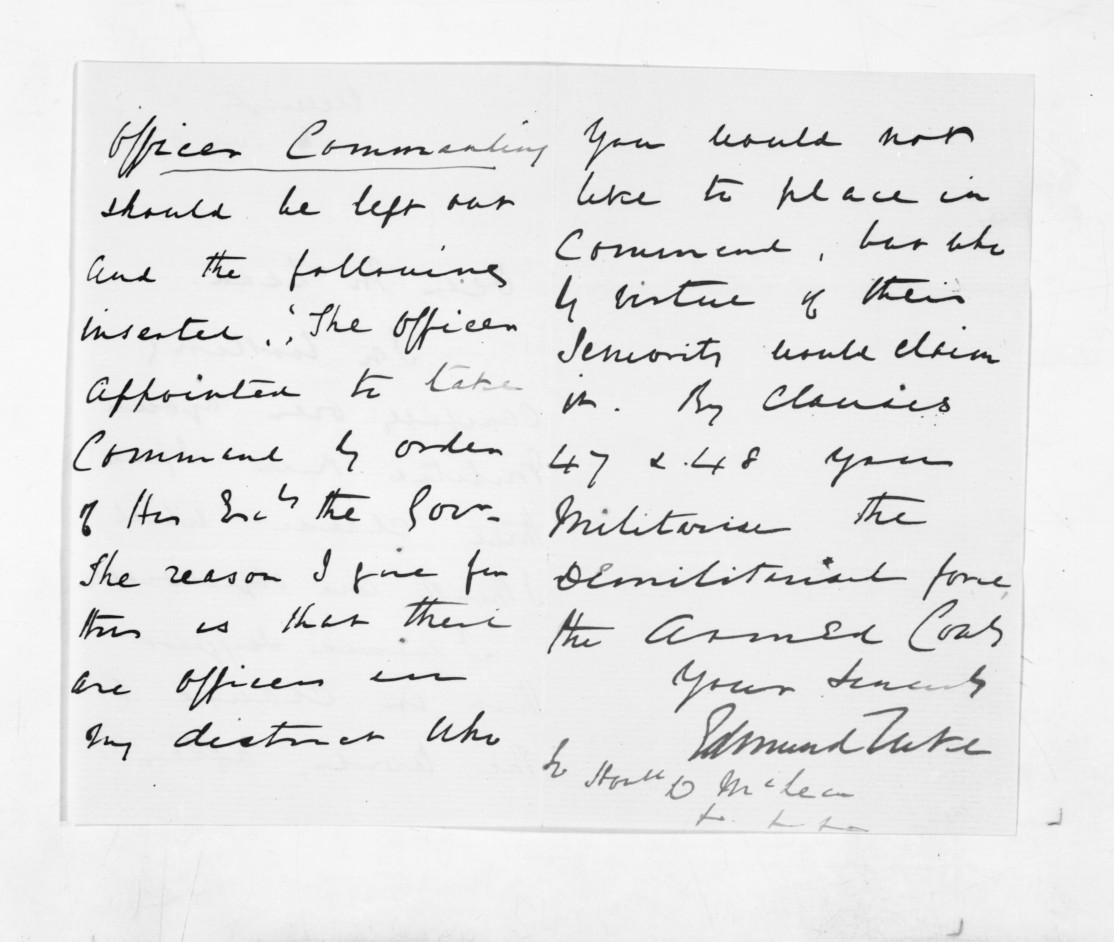 Officer Commanding
should be left out
and the following
inserted, "The Officer
appointed to take
Command by order
of His Excy the Govr.
The reason I give for
this is that there
are officers in
my district who
you would not
like to place in
Command, but who
by virtue of their
Seniority would claim
it. By Clauses
47 & 48 you
Militarise the
Demilitarised force,
the Armed Consty
Yours Sincerely
Edmund Tuke
Honble D McLean